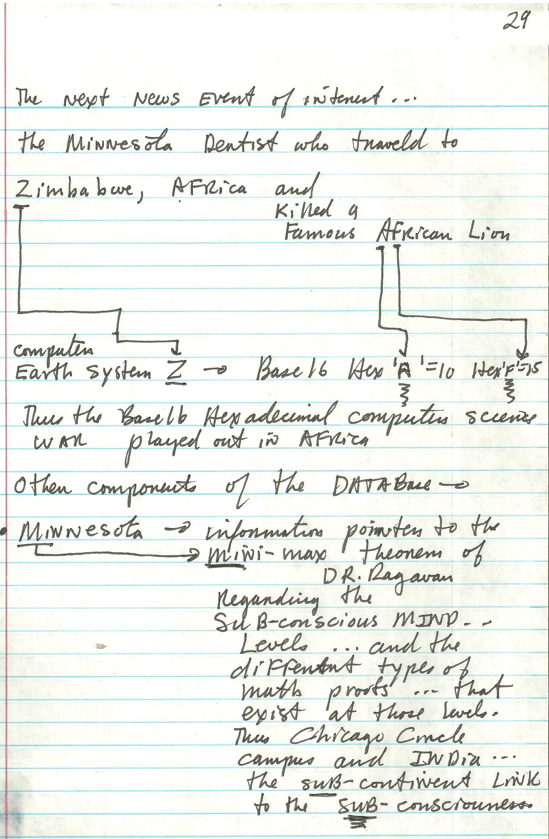 29
The next News Event of interest...
the Minnesota Dentist who traveld to
Zimbabwe, AFRica and
Killed a
Famous AFRican Lion
computer
Earth System Z → Base 16 Hex 'A'=10 Hex'F'=15
Thus the Base16 Hexadecimal computer science
WAR played out in AFRica
Other components of the DATABase →
• Minnesota → information pointer to the
mini-max theorem of
DR. Ragavan
Regarding the
SUB-conscious MIND...
Levels ... and the
different types of
math proofs ... that
exist at those levels.
Thus Chicago Circle
campus and INDia ...
the SUB-continent LINK
to the SUB-consciousness